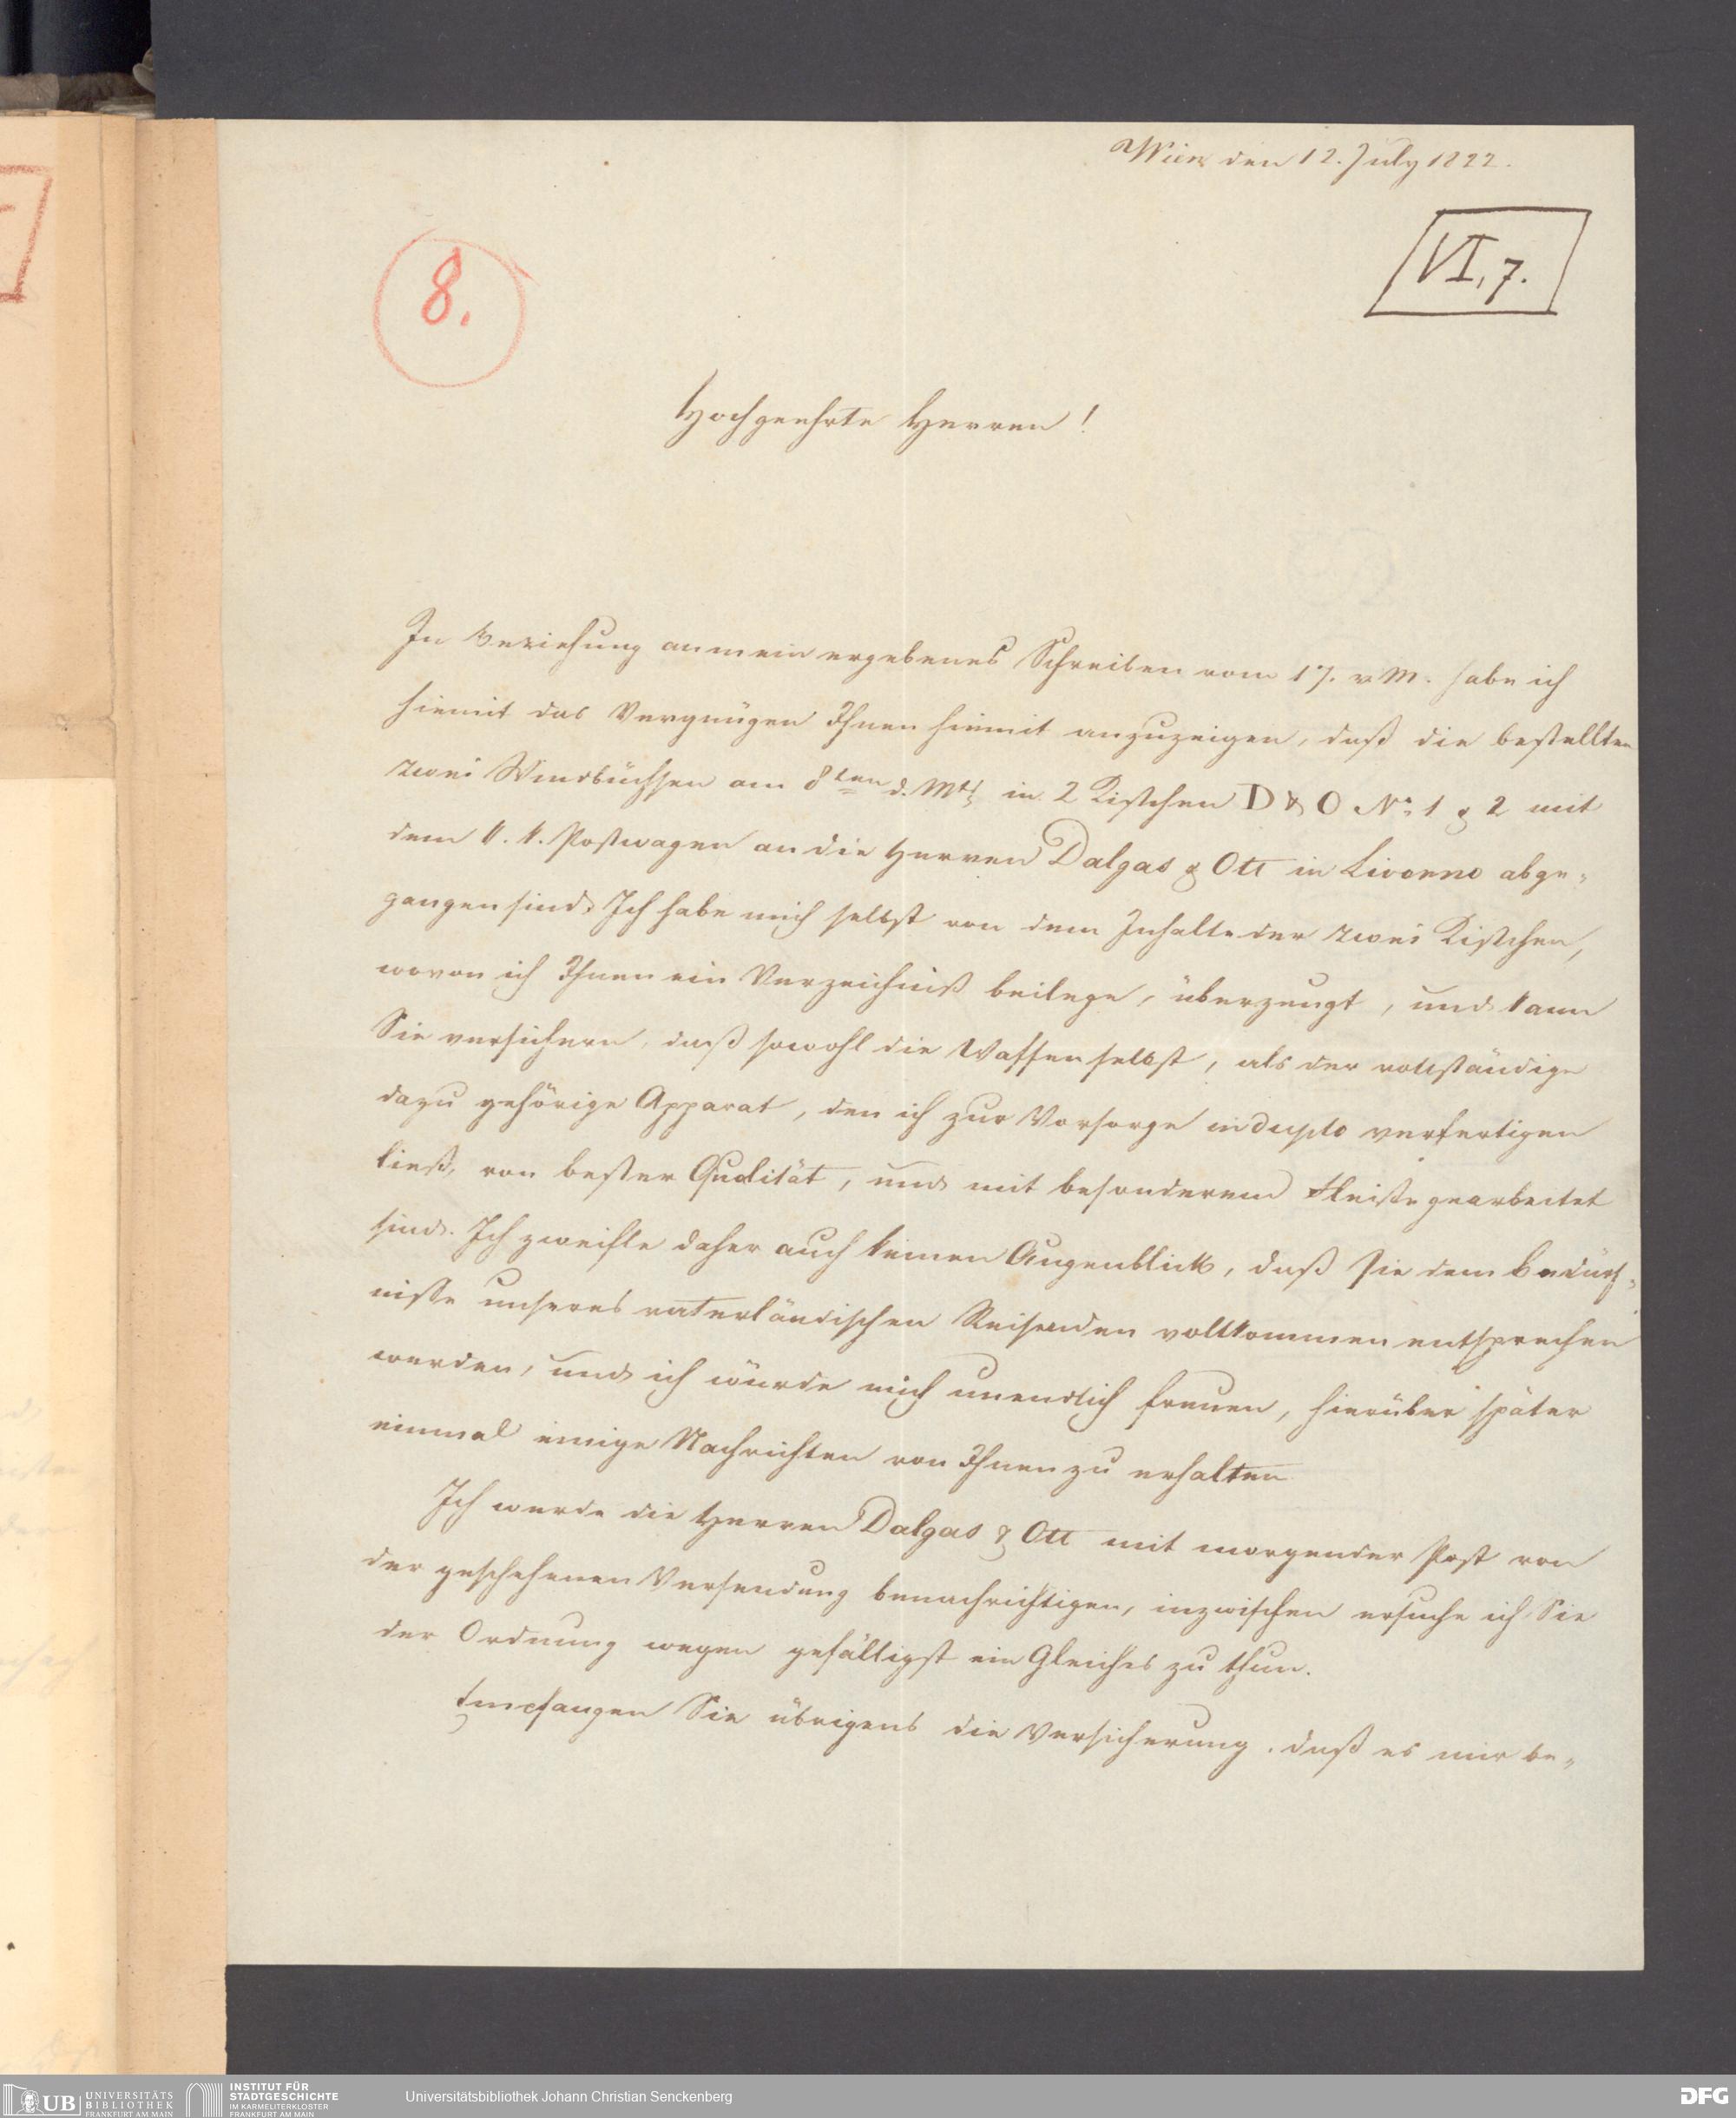 Wien den 12. July 1822.
VI, 7.
8.
Hochgeehrte Herren!
In Beziehung an mein ergebenes Schreiben vom 17. v M. habe ich
hiemit das Vergnügen Ihnen hiemit anzuzeigen, daß die bestellten
zwei Windbüchsen am 8ten d. Mts in 2 Kistchen D & O No. 1 & 2 mit
dem k. k. Postwagen an die Herren Dalgas & Ott in Livorno abge-
gangen sind. Ich habe mich selbst von dem Inhalte der zwei Kistchen,
wovon ich Ihnen ein Verzeichniß beilege, überzeugt, und kann
Sie versichern, daß sowohl die Waffen selbst, als der vollständige
dazu gehörige Apparat, den ich zur Vorsorge in duplo verfertigen
ließ, von bester Qualität, und mit besonderem Fleiße gearbeitet
sind. Ich zweifle daher auch keinen Augenblick, daß sie dem Bedürf-
nisse unseres vaterländischen Reisenden vollkommen entsprechen
werden, und ich würde mich unendlich freuen, hierüber später
einmal einige Nachrichten von Ihnen zu erhalten
Ich werde die Herren Dalgas & Ott mit morgender Post von
der geschehenen Versendung benachrichtigen, inzwischen ersuche ich Sie
der Ordnung wegen gefälligst ein Gleiches zu thun.
Empfangen Sie übrigens die Versicherung, daß es mir be-
UB UNIVERSITÄTS
BIBLIOTHEK
FRANKFURT AM MAIN
INSTITUT FÜR
STADTGESCHICHTE
IM KARMELITERKLOSTER
FRANKFURT AM MAIN
Universitätsbibliothek Johann Christian Senckenberg
DFG